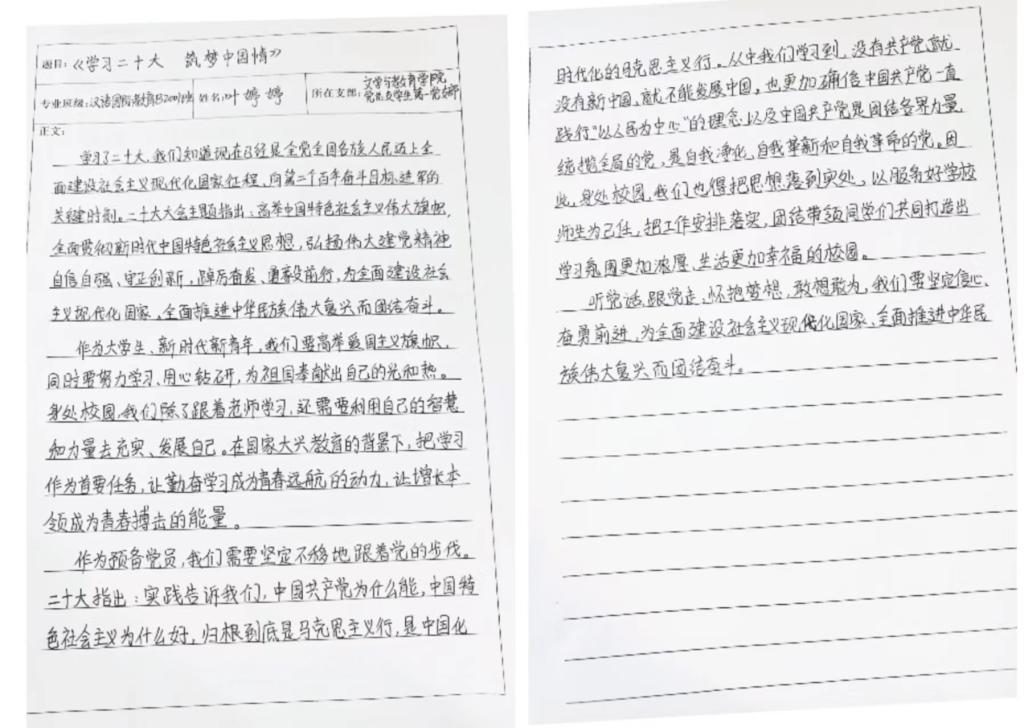 题目:《学习二十大 筑梦中国情》
专业班级:汉语国际教育B2001班 姓名:叶婷婷 所在支部:文学与教育学院
党总支学生第一党支部
正文:
学习了二十大,我们知道现在已经是全党全国各族人民迈上全
面建设社会主义现代化国家征程、向第二个百年奋斗目标进军的
关键时刻。二十大大会主题指出:高举中国特色社会主义伟大旗帜,
全面贯彻新时代中国特色社会主义思想,弘扬伟大建党精神
自信自强、守正创新,踔厉奋发、勇毅前行,为全面建设社会
主义现代化国家、全面推进中华民族伟大复兴而团结奋斗。
作为大学生、新时代新青年,我们要高举爱国主义旗帜,
同时要努力学习、用心钻研,为祖国奉献出自己的光和热。
身处校园,我们除了跟着老师学习,还需要利用自己的智慧
和力量去充实、发展自己。在国家大兴教育的背景下,把学习
作为首要任务,让勤奋学习成为青春远航的动力,让增长本
领成为青春搏击的能量。
作为预备党员,我们需要坚定不移地跟着党的步伐。
二十大指出:实践告诉我们,中国共产党为什么能,中国特
色社会主义为什么好,归根到底是马克思主义行,是中国化
时代化的马克思主义行。从中我们学习到,没有共产党就
没有新中国,就不能发展中国。也更加确信中国共产党一直
践行“以人民为中心”的理念以及中国共产党是团结各界力量
统揽全局的党,是自我净化、自我革新和自我革命的党。因
此,身处校园,我们也得把思想落到实处,以服务好学校
师生为己任,把工作安排落实,团结带领同学们共同打造出
学习氛围更加浓厚、生活更加幸福的校园。
听党话、跟党走、怀抱梦想、敢想敢为,我们要坚定信心、
奋勇前进,为全面建设社会主义现代化国家、全面推进中华民
族伟大复兴而团结奋斗。